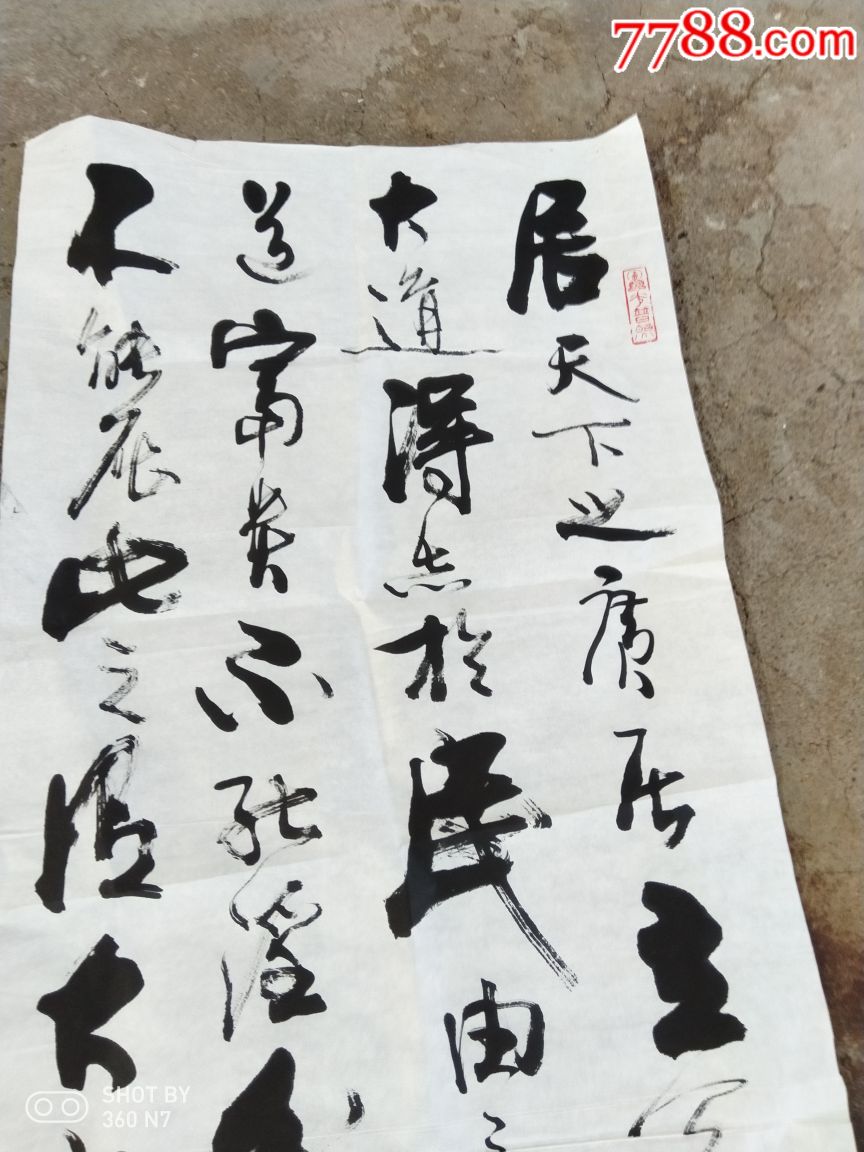 7788.com
居天下之廣居立
大道得志於民由之
道富貴不能淫
不能屈此之謂大
SHOT BY
360 N7